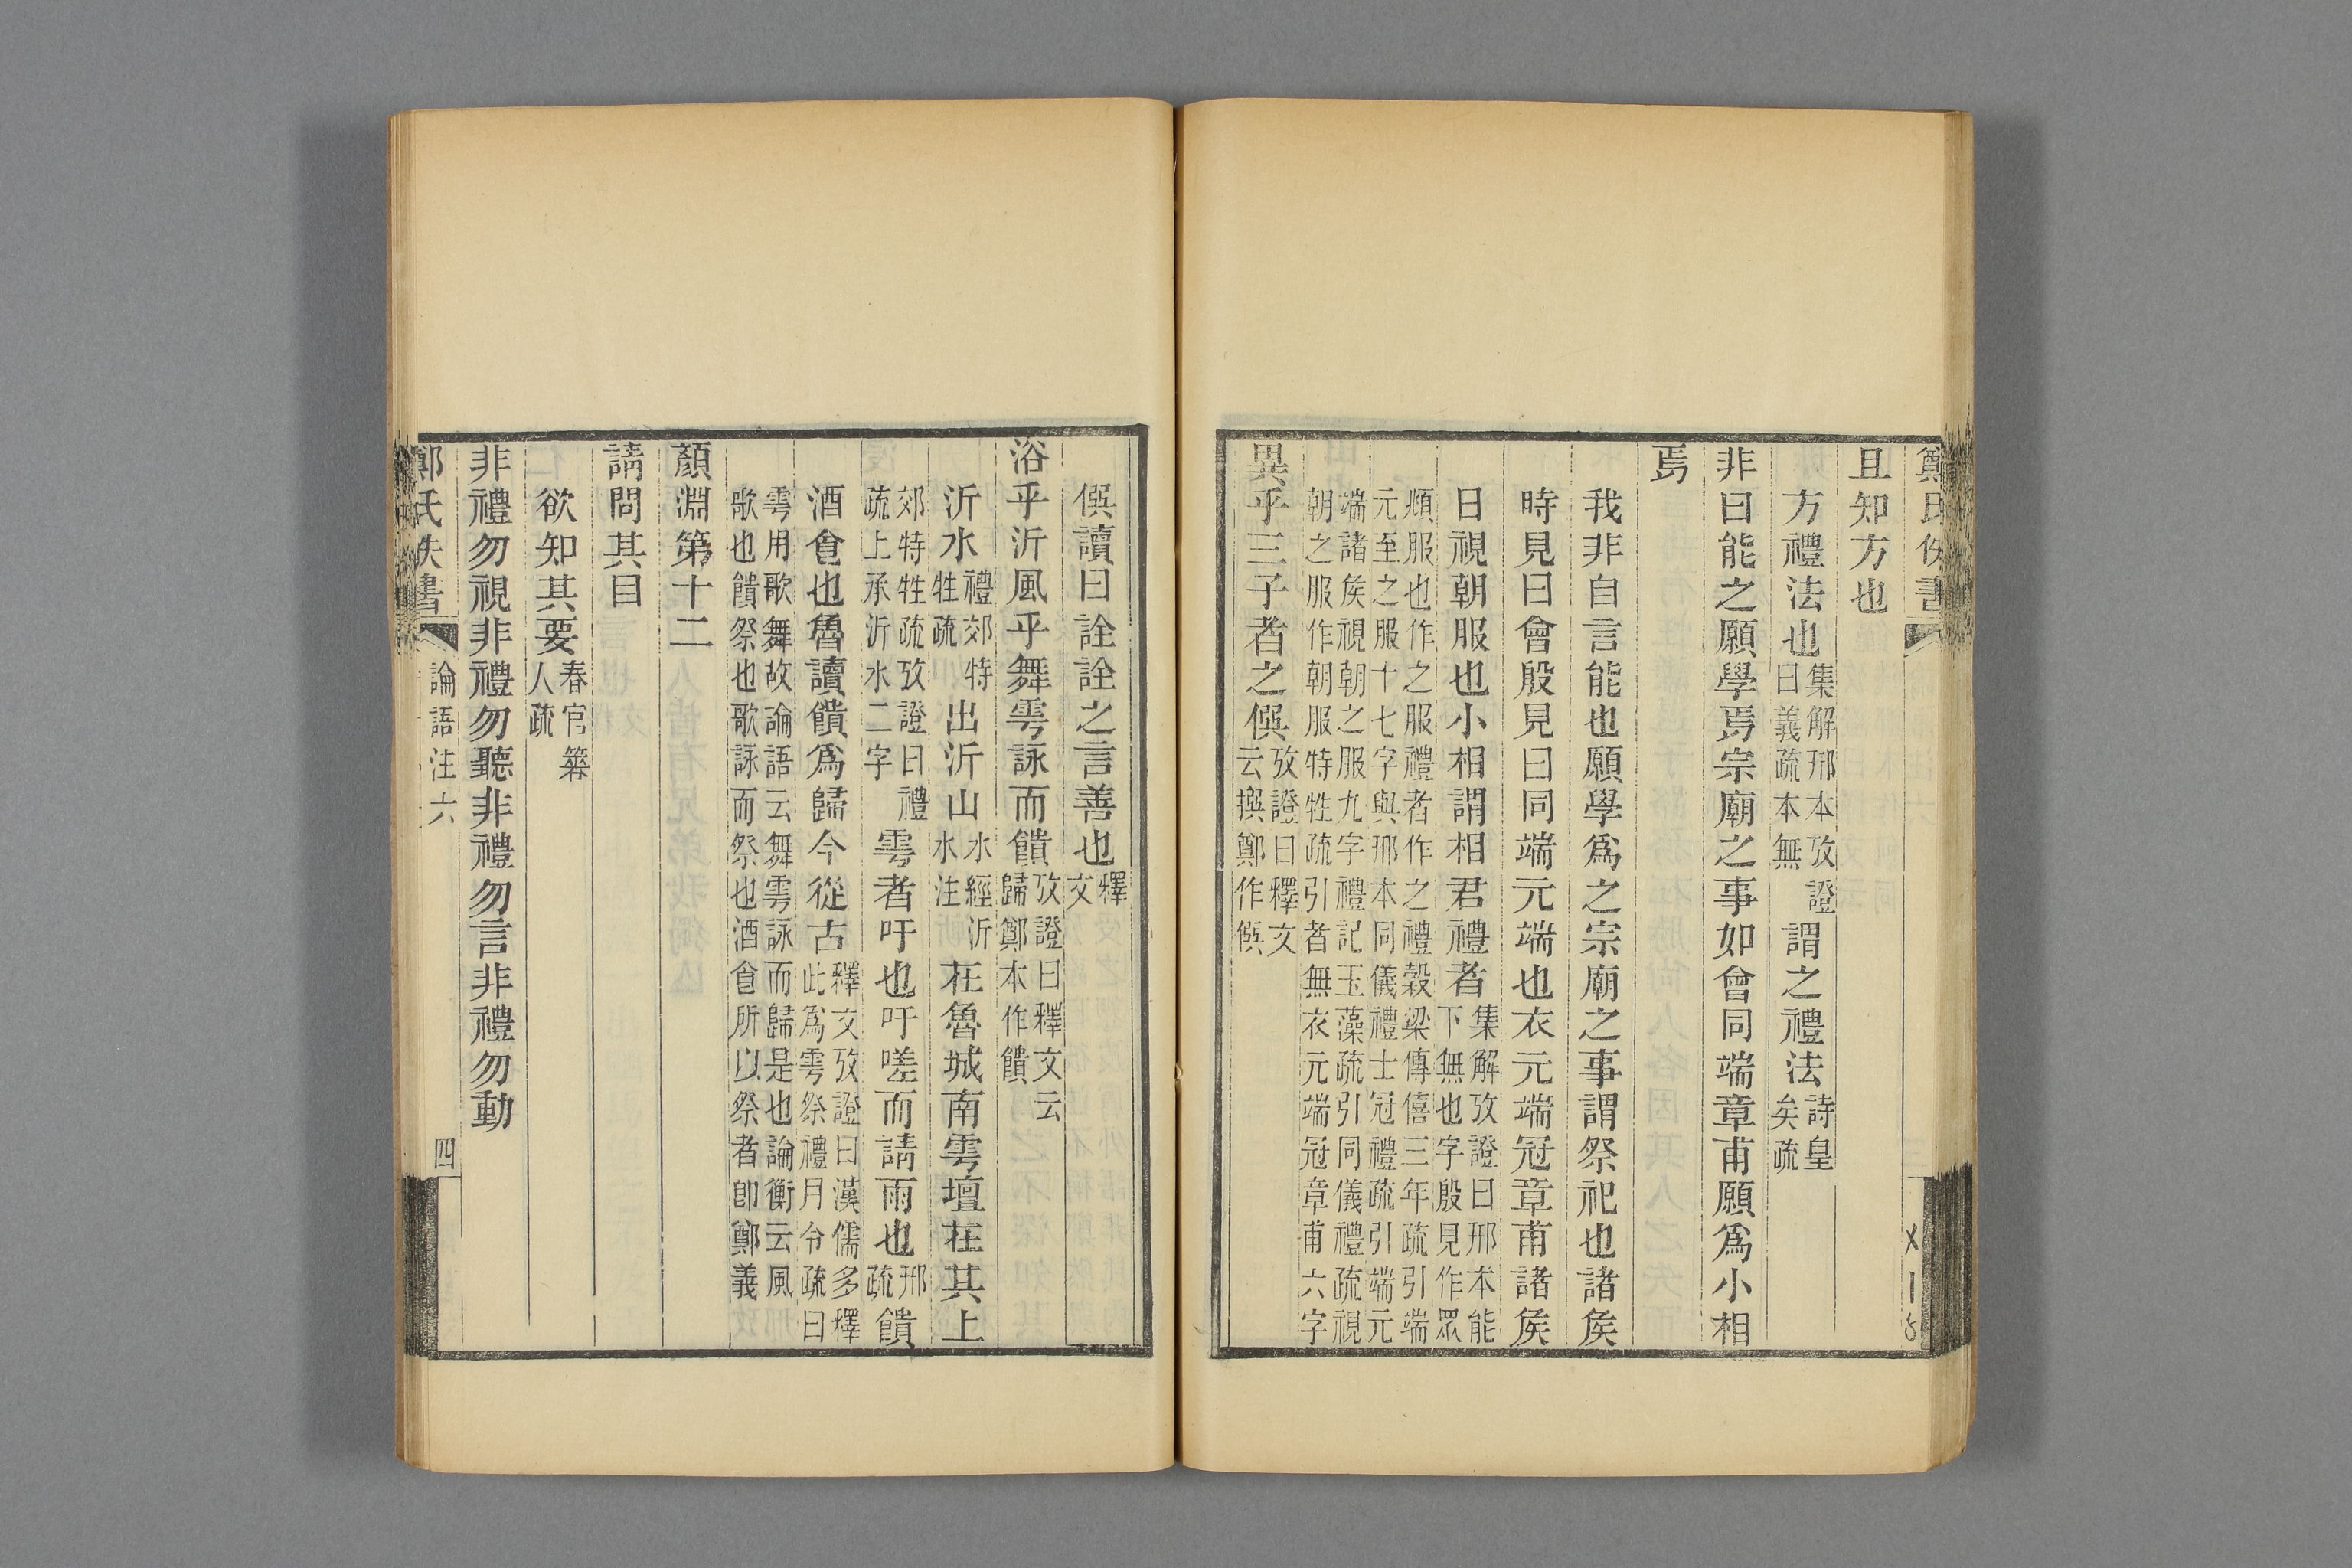 鄭氏佚書
且知方也
方禮法也集解邢本攷證曰義疏本無謂之禮法詩皇矣疏
非曰能之願學焉宗廟之事如會同端章甫願爲小相
焉
我非自言能也願學爲之宗廟之事謂祭祀也諸侯
時見曰會殷見曰同端元端也衣元端冠章甫諸侯
日視朝服也小相謂相君禮者集解攷證曰邢本能下無也字殷見作眾
頫服也作之服禮者作之禮穀梁傳僖三年疏引端元至之服十七字與邢本同儀禮士冠禮疏引端元
端諸侯視朝之服九字禮記玉藻疏引同儀禮疏視朝之服作朝服特牲疏引者無衣元端冠章甫六字
異乎三子者之僎攷證曰釋文云撰鄭作僎
僎讀曰詮詮之言善也釋文
浴乎沂風乎舞雩詠而饋攷證曰釋文云歸鄭本作饋
沂水禮郊特牲疏出沂山水經沂水注在魯城南雩壇在其上
郊特牲疏攷證曰禮疏上承沂水二字雩者吁也吁嗟而請雨也邢疏饋
酒食也魯讀饋爲歸今從古釋文攷證曰漢儒多釋此爲雩祭禮月令疏曰
雩用歌舞故論語云舞雩詠而歸是也論衡云風歌也饋祭也歌詠而祭也酒食所以祭者卽鄭義
顏淵第十二
請問其目
欲知其要春官簭人疏
非禮勿視非禮勿聽非禮勿言非禮勿動
鄭氏佚書
論語注六
四